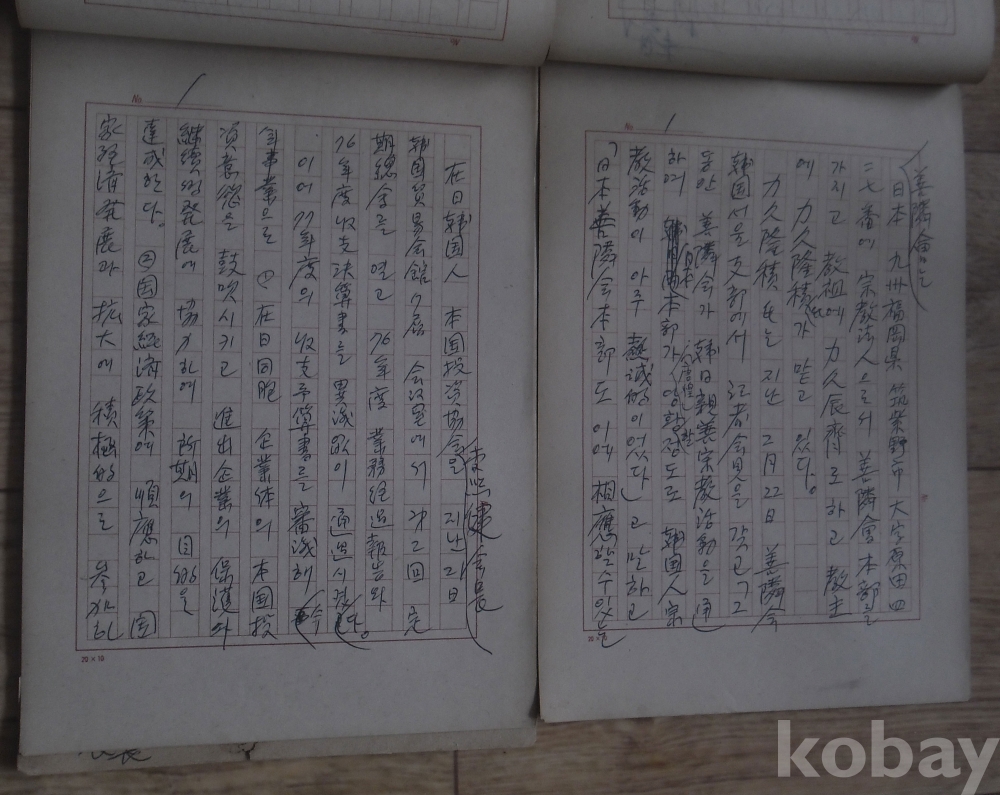 No. 1
善隣會는
日本 九州福岡県 筑紫野市 大字原田四
二七番에 宗教法人으로서 善隣會本部를
가지고 教祖에 力久辰齊로 하고 教主
에 力久隆積氏가 맡고 있다.
力久隆積氏는 지난 2月22日 善隣会
韓国서울支部에서 記者会見을 갖고 그
동안 善隣会가 韓日親善宗教活動을 通
하여 日本 本部가 정도로 韓国人宗
教活動이 아주 熱誠的이었다고 말하고
日本善隣会本部도 이에 相應할수있는
No. 1
李熙健會長
在日韓国人 本国投資協会는 지난 日
韓国貿易会館 17层 会議室에서 제2回 定
期總会를 열고 76年度 業務経過報告와
76年度收支決算書를 異議없이 通過시켰다.
이어 77年度의 收支予算書를 審議해 今
年事業으로 ① 在日同胞 企業体의 本国投
資意慾을 鼓吹시키고 進出企業의 保護와
継続的発展에 協力하여 所期의 目的을
達成한다. ②国家経済政策에 順應하고 国
家経済発展과 拡大에 積極的으로 參加하
20×10
kobay